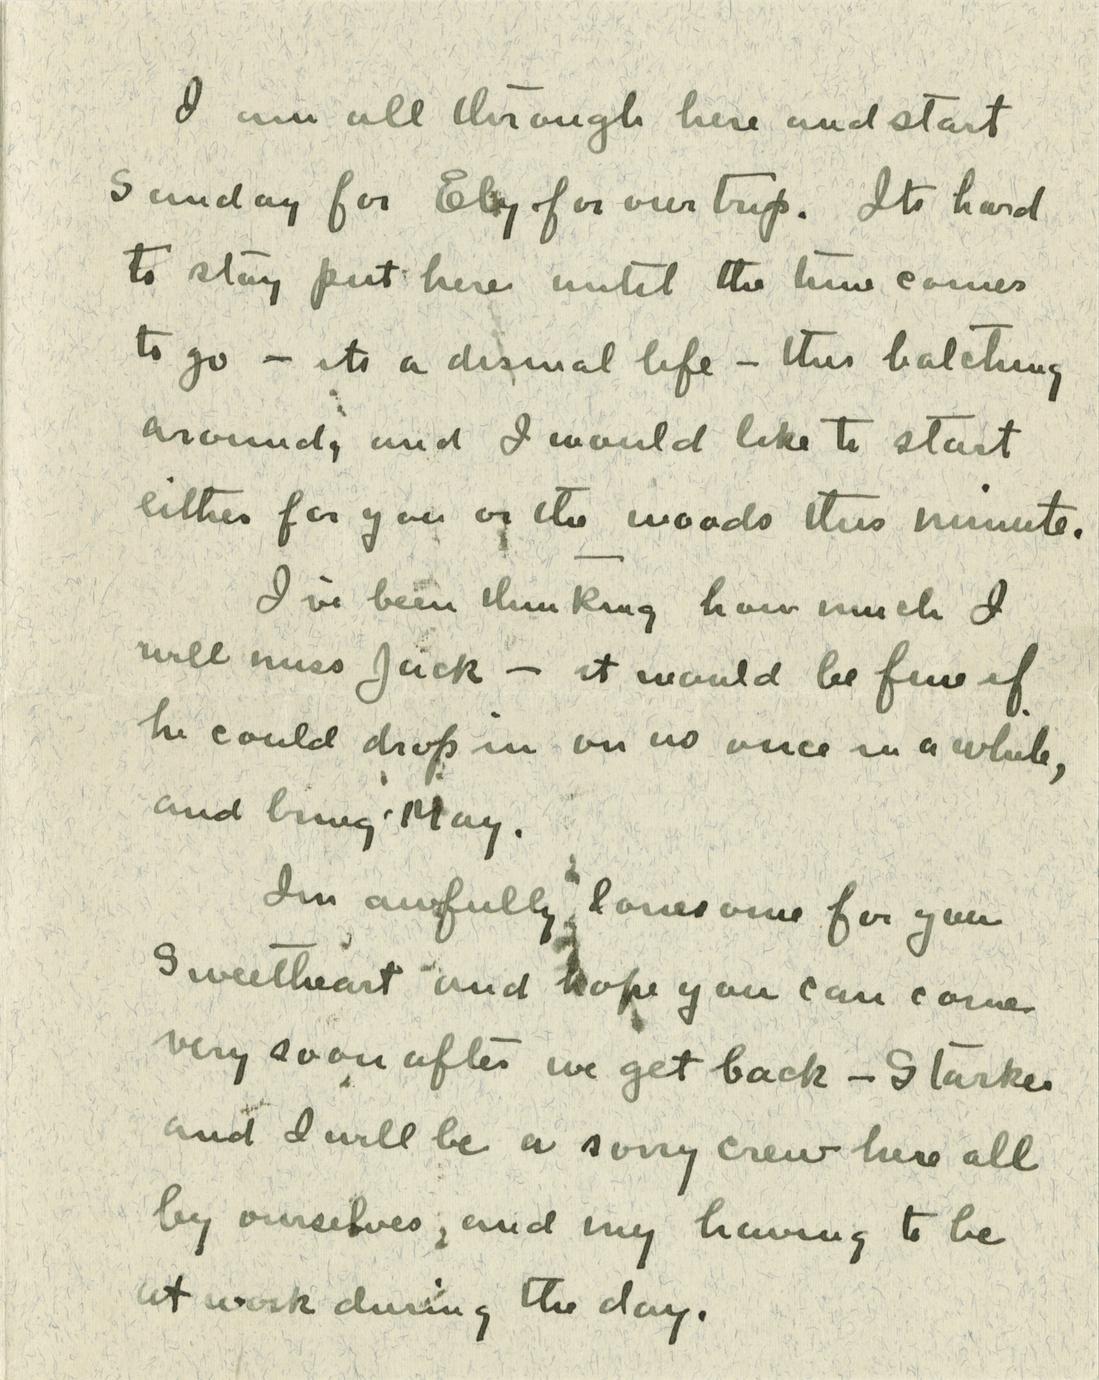 I am all through here and start
Sunday for Ely for our trip. Its hard
to stay put here until the time comes
to go – its a dismal life – this batching
around, and I would like to start
either for you or the woods this minute.
I've been thinking how much I
will miss Jack – it would be fine if
he could drop in on us once in a while,
and bring May.
Im awfully lonesome for you
Sweetheart and hope you can come
very soon after we get back – Starkee
and I will be a sorry crew here all
by ourselves, and my having to be
at work during the day.